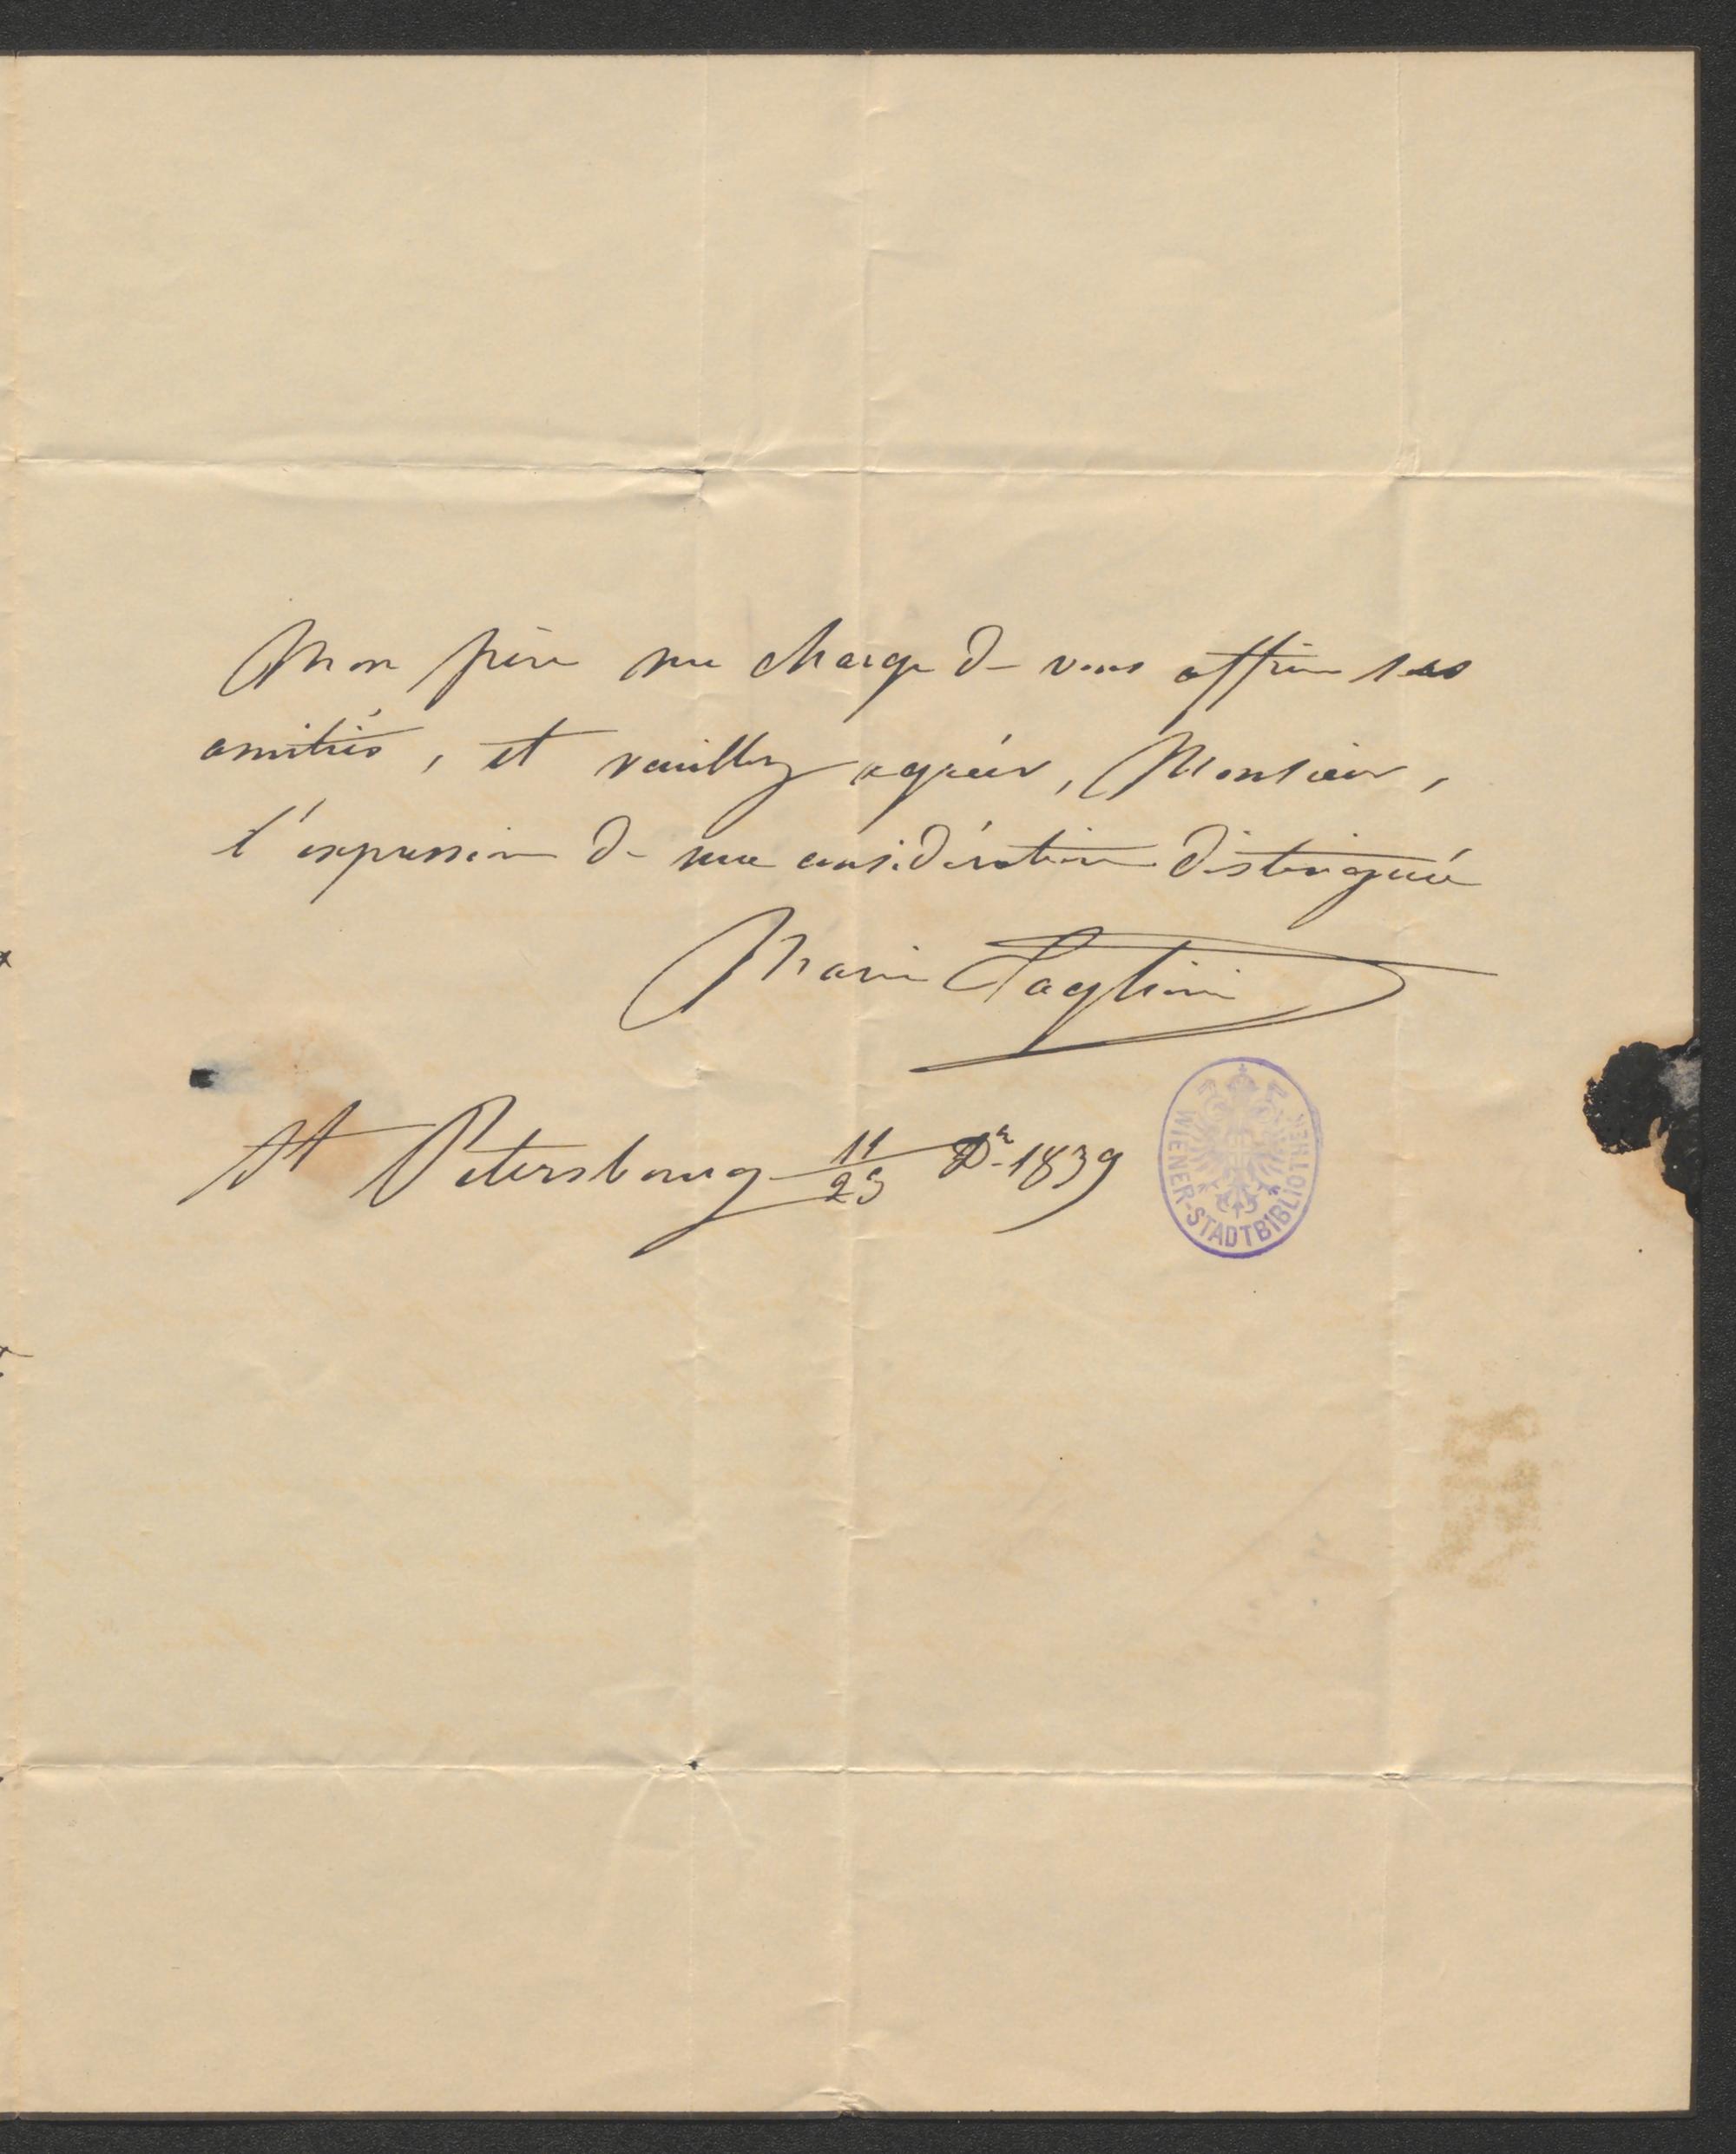 Mon père me charge de vous offrir ses
amitiés, et veuillez agréer, Monsieur,
l'expression de ma considération distinguée
Marie Taglioni
St Petersbourg 11/23 Dr 1839
WIENER-STADTBIBLIOTHEK